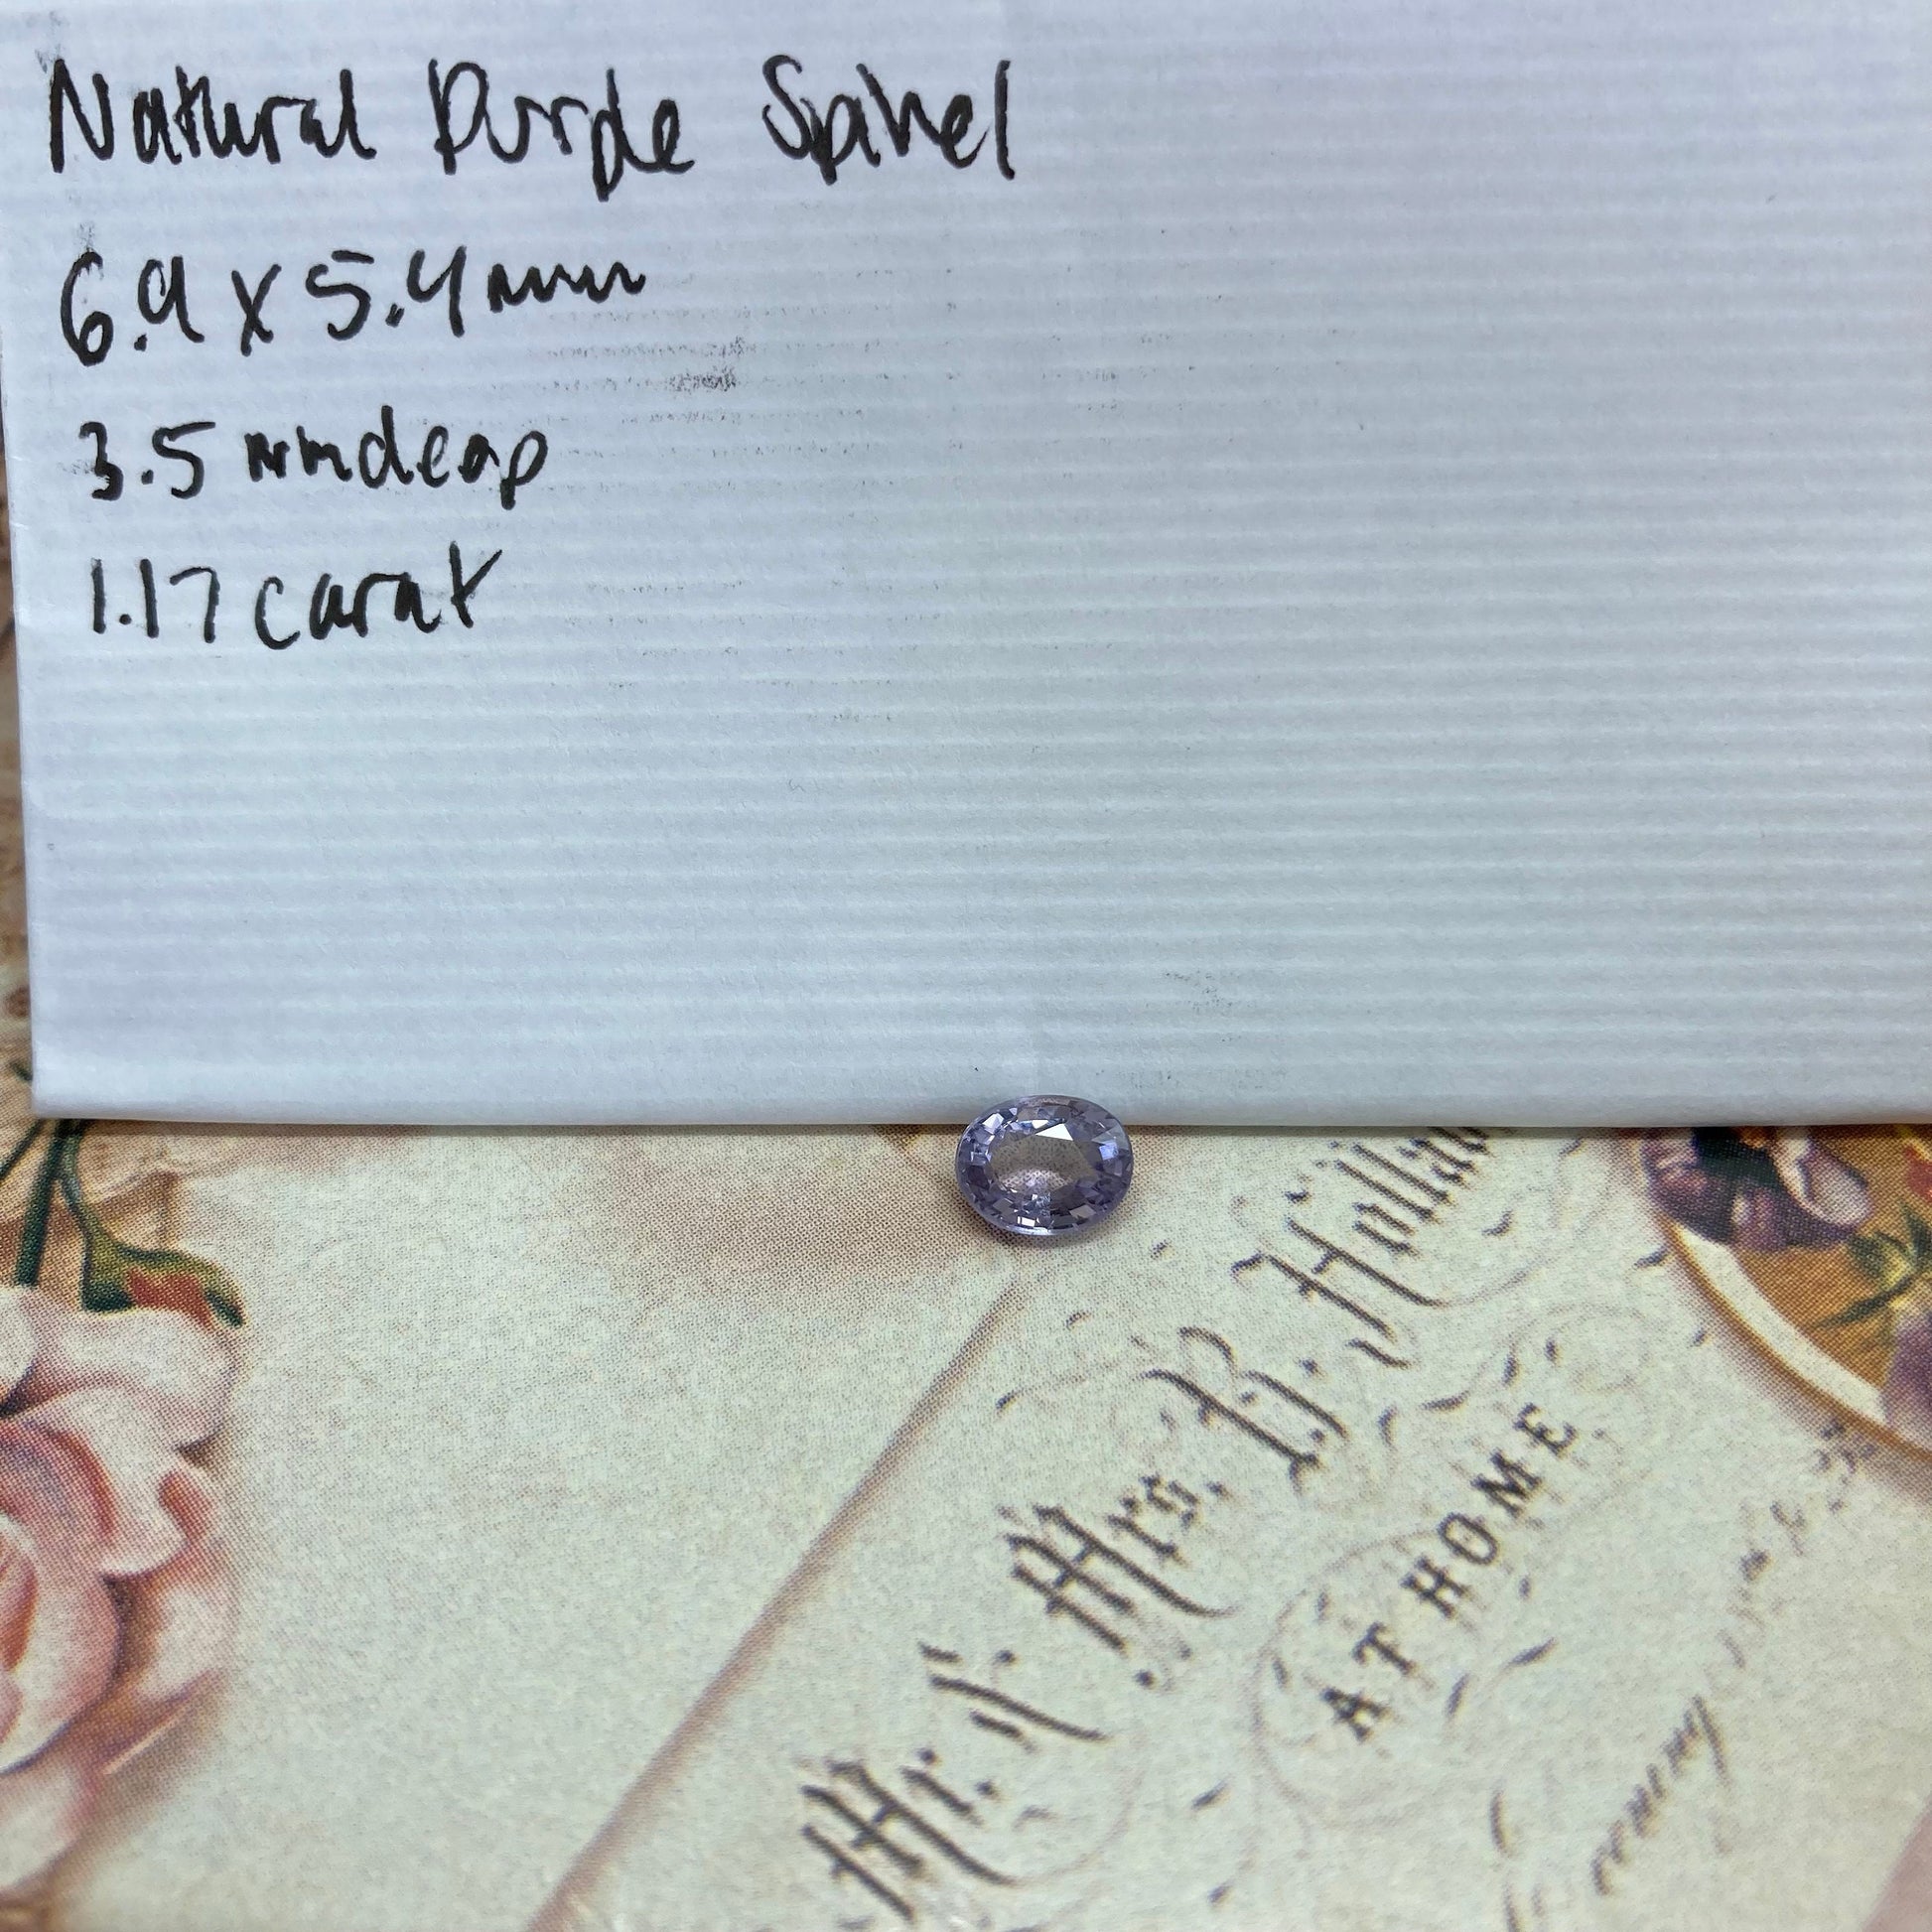 Natural Purple Spinel
6.9 x 5.4 mm
3.5 mm deep
1.17 carat
Mr. & Mrs. B. Holland
AT HOME